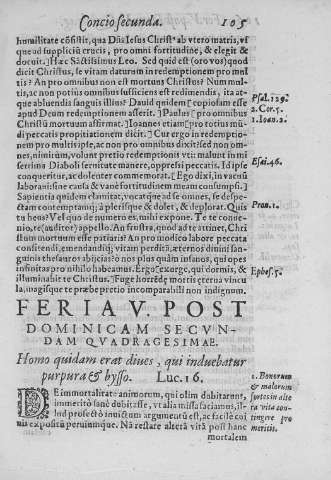 Concio secunda. 105
humilitate cõsistit, qua Dñs Iesus Christ⁹ ab vtero matris, vs
que ad suppliciũ crucis, pro omni fortitudine, & elegit &
docuit. ] Hæc Sãctissimus Leo. Sed quid est (oro vos) quod
dicit Christus, se vitam daturum in redemptionem pro mul
tis? An pro omnibus non est mortuus Christus? Num mul
tis, ac non potius omnibus sufficiens est redimendis, ita at-
que abluendis sanguis illius? Dauid quidem [ copiosam esse
apud Deum redemptionem asserit. ] Paulus [ pro omnibus
Christũ mortuum affirmat. ] Ioannes etiam [ pro totius mũ-
di peccatis propitiationem dicit. ] Cur ergo in redemptio-
nem pro multis ipse, ac non pro omnibus dixit? sed non om-
nes, nimirum, volunt pretio redemptionis vti: malunt in mi
serrima Diaboli seruitute manere, oppressi peccatis. Id ipse
conqueritur, ac dolenter commemorat. [ Ego dixi, in vacuũ
laboraui: sine causa & vanè fortitudinem meam consumpsi. ]
Sapientia quidem clamitat, vocatque ad se omnes, se despe-
ctam contemptamq; à plerisque & dolet, & deplorat. Quis
tu heus? Vel quo de numero es, mihi expone. Te te conue-
nio, te (auditor) appello. An frustra, quod ad te attinet, Chri
stum mortuum esse patiaris? An pro modico labore peccata
confitendi, emendandiq; vitam perdis, æternos diuini san-
guinis thesauros abijcias? nos plus quàm insanos, qui opes
infinitas pro nihilo habeamus. Ergo [ exurge, qui dormis, & il
luminabit te Christus. ] Fuge horrẽdę mortis ęterna vincu
la, magisque te præbe pretio incomparabili non indignum.
Psal. 129.
2. Cor. 5.
1. Ioan. 2.
Esai. 46.
Prou. 1.
Ephes. 5.
FERIA V. POST
DOMINICAM SECVN-
DAM QVADRAGESIMAE.
Homo quidam erat diues, qui induebatur
purpura & bysso. Luc. 16.
DE immortalitate animorum, qui olim dubitarent,
immeritò sanè dubitasse, vt alia missa faciamus, il-
lud profectò inuictum argumentũ est, ac facilè coi
uis expositũ peruiumque. Nã restare alterã vitã post hanc
mortalem
1. Bonorum
& malorum
sortes in alte
ra vita con-
tingere pro
meritis.